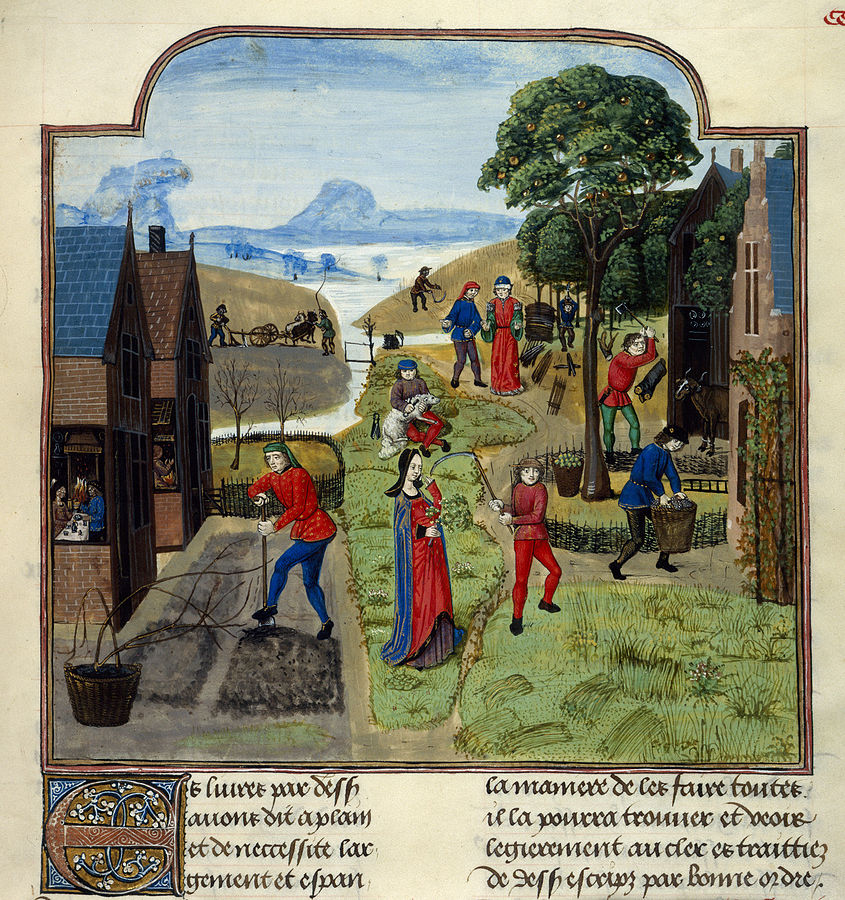 Es liures par dess
auons dit a plain
et de neccessite lar
gement et espan
la maniere de les faire toutes.
il la pourra trouuer et veoir
legierement au cler es traittiez
de dess escripz par bonne ordre.